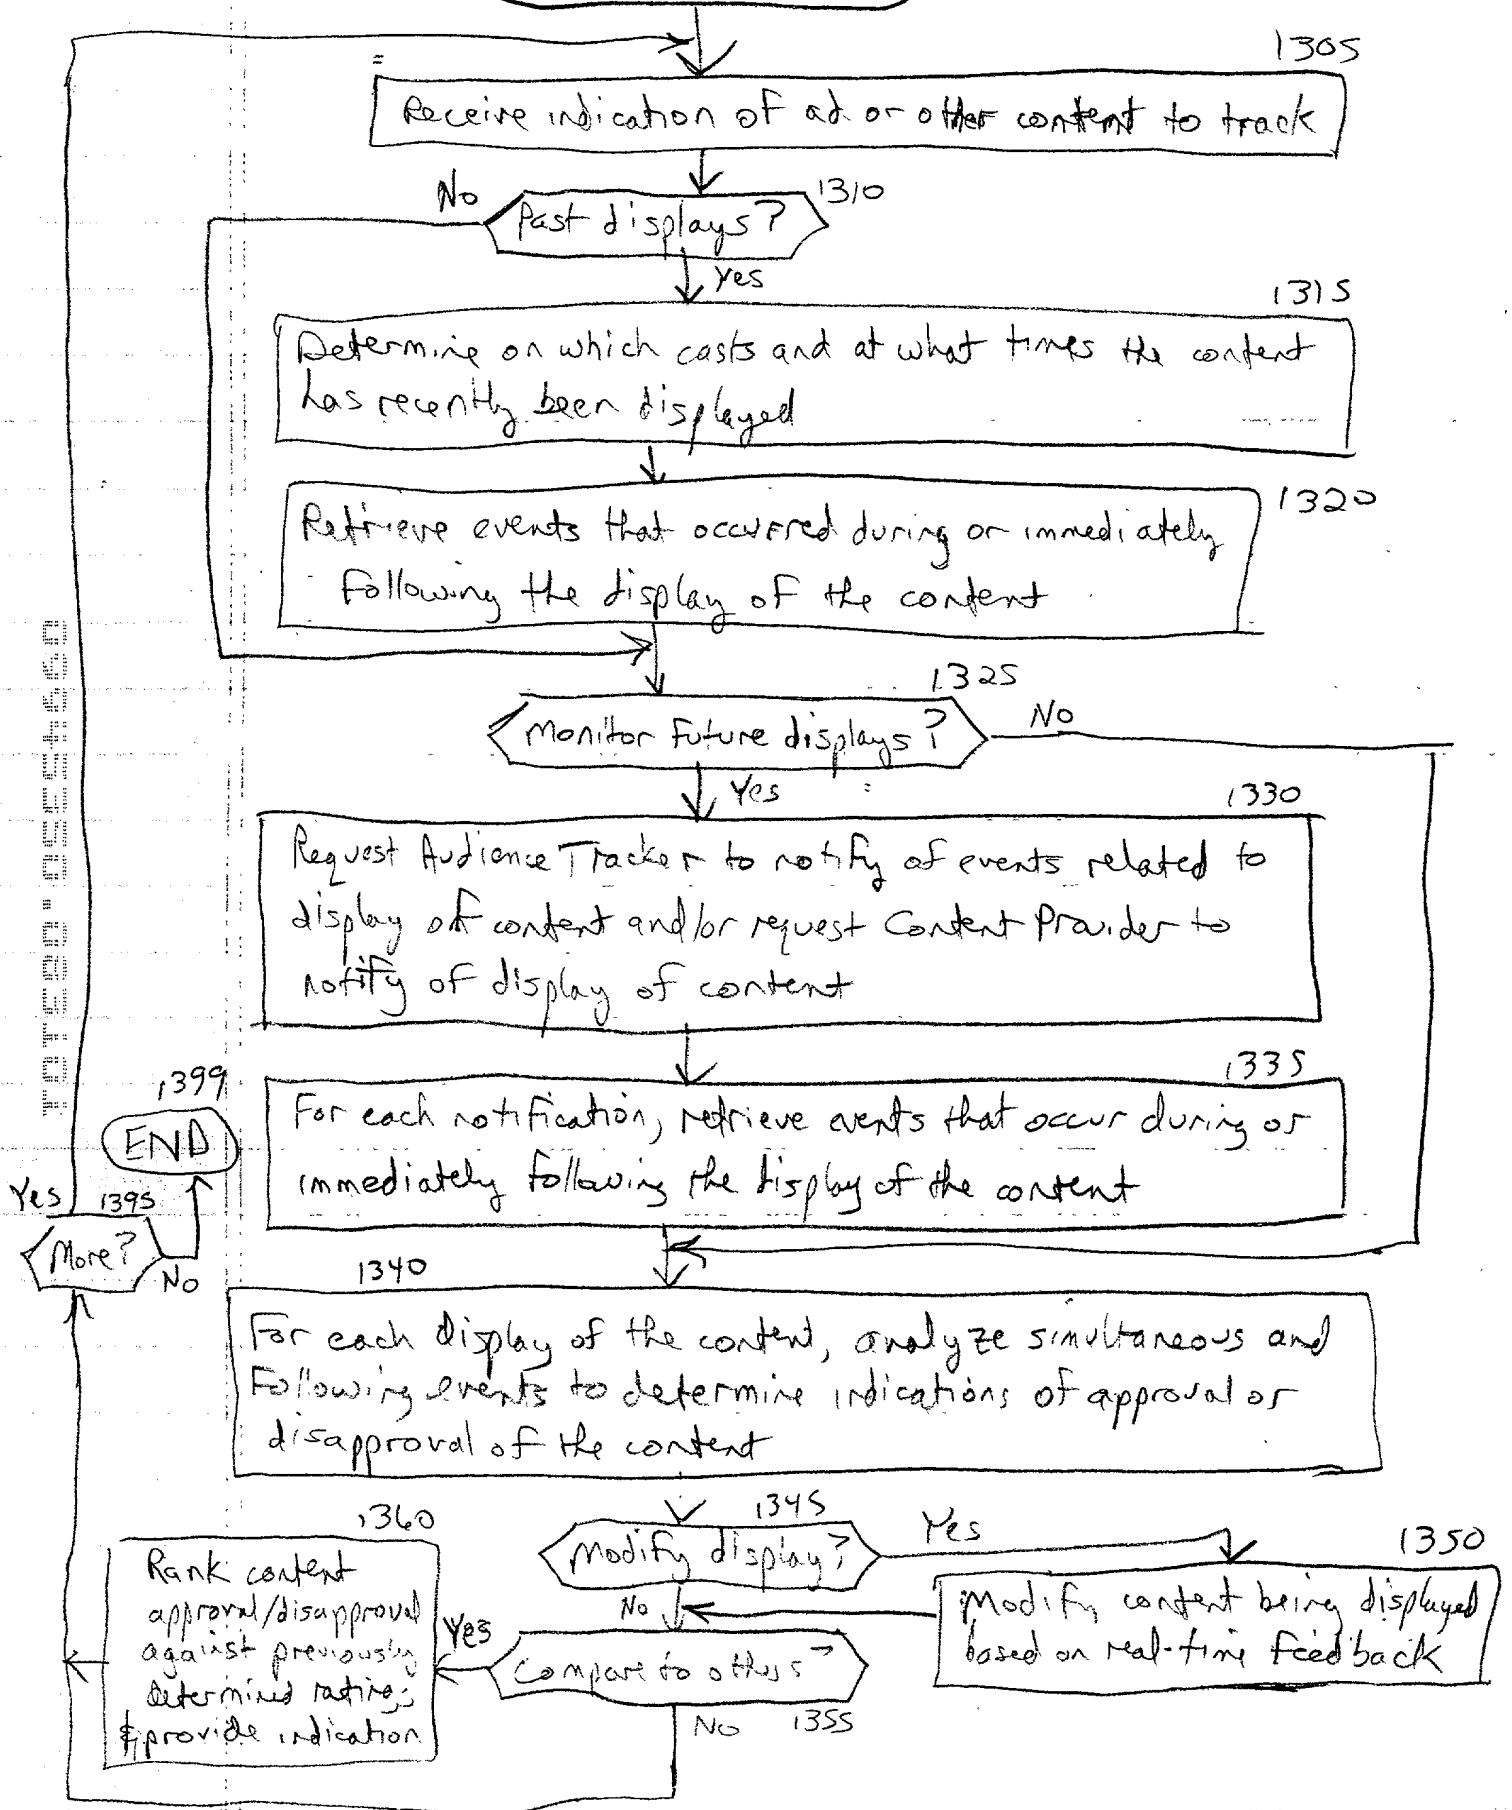 1305
Receive indication of ad or other content to track
No
1310
Past displays?
Yes
1315
Determine on which casts and at what times the content
has recently been displayed
1320
Retrieve events that occurred during or immediately
following the display of the content
1325
Monitor future displays?
No
Yes
1330
Request Audience Tracker to notify of events related to
display of content and/or request Content Provider to
notify of display of content
1335
For each notification, retrieve events that occur during or
immediately following the display of the content
1399
END
Yes
1395
More?
No
1340
For each display of the content, analyze simultaneous and
following events to determine indications of approval or
disapproval of the content
1345
Modify display?
Yes
1350
Modify content being displayed
based on real-time feedback
No
1360
Rank content
approval/disapproval
against previously
determined ratings
& provide indication
Yes
Compare to others?
1355
No